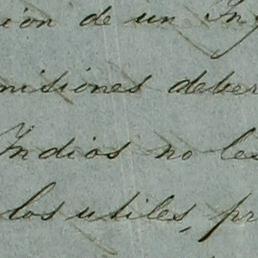 ion de un In
misiones deber
Indios no les
los utiles, pr